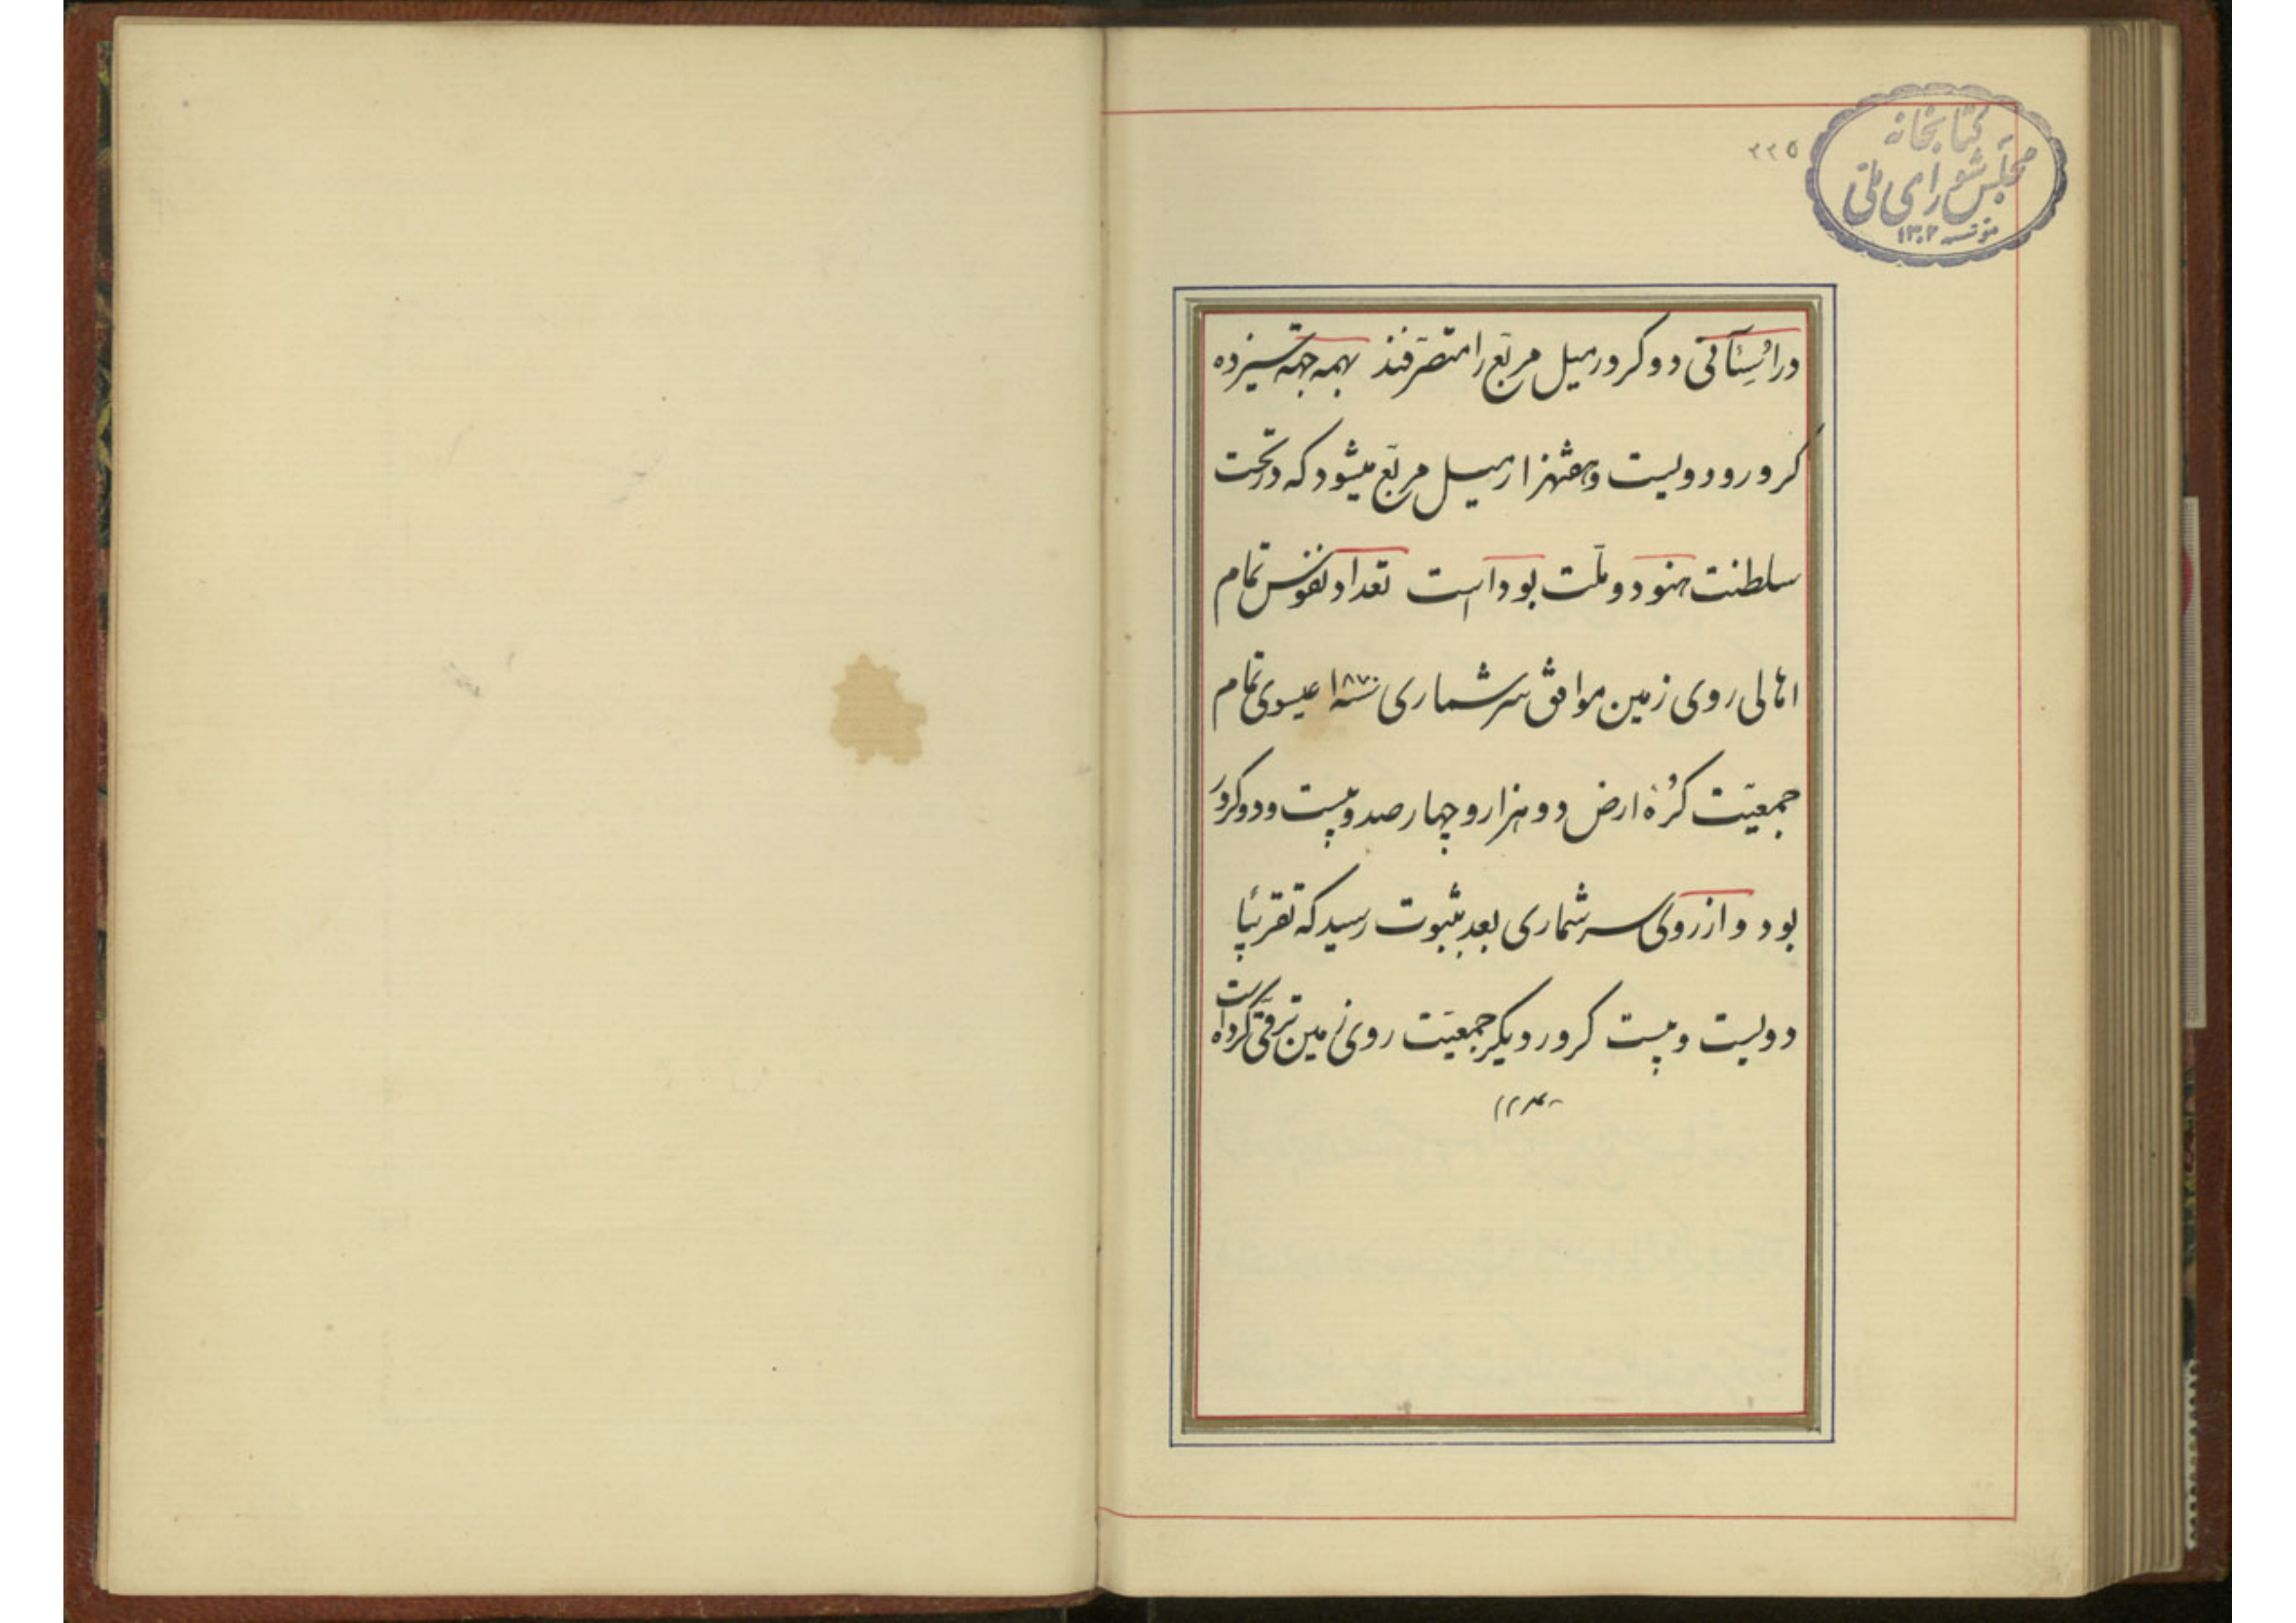 ۲۲۵
کتابخانه
مجلس شورای ملی
مؤسسه ۱۳۰۲
در اُسِتآنی دو کرور میل مربّع را متصرّفند بهمه جهة سیزده
کرور و دویست و هفتهزار میل مربّع میشود که در تحت
سلطنت هنود و ملّت بوداست تعداد نفوس تمام
اهالی روی زمین موافق سرشماری سنه ۱۸۷۰ عیسوی تمام
جمعیّت کُرۀ ارض دو هزار و چهارصد و بیست و دو کرور
بود و از روی سرشماری بعد بثبوت رسید که تقریبًا
دویست و بیست کرور دیگر جمعیّت روی زمین ترقّی کرده است